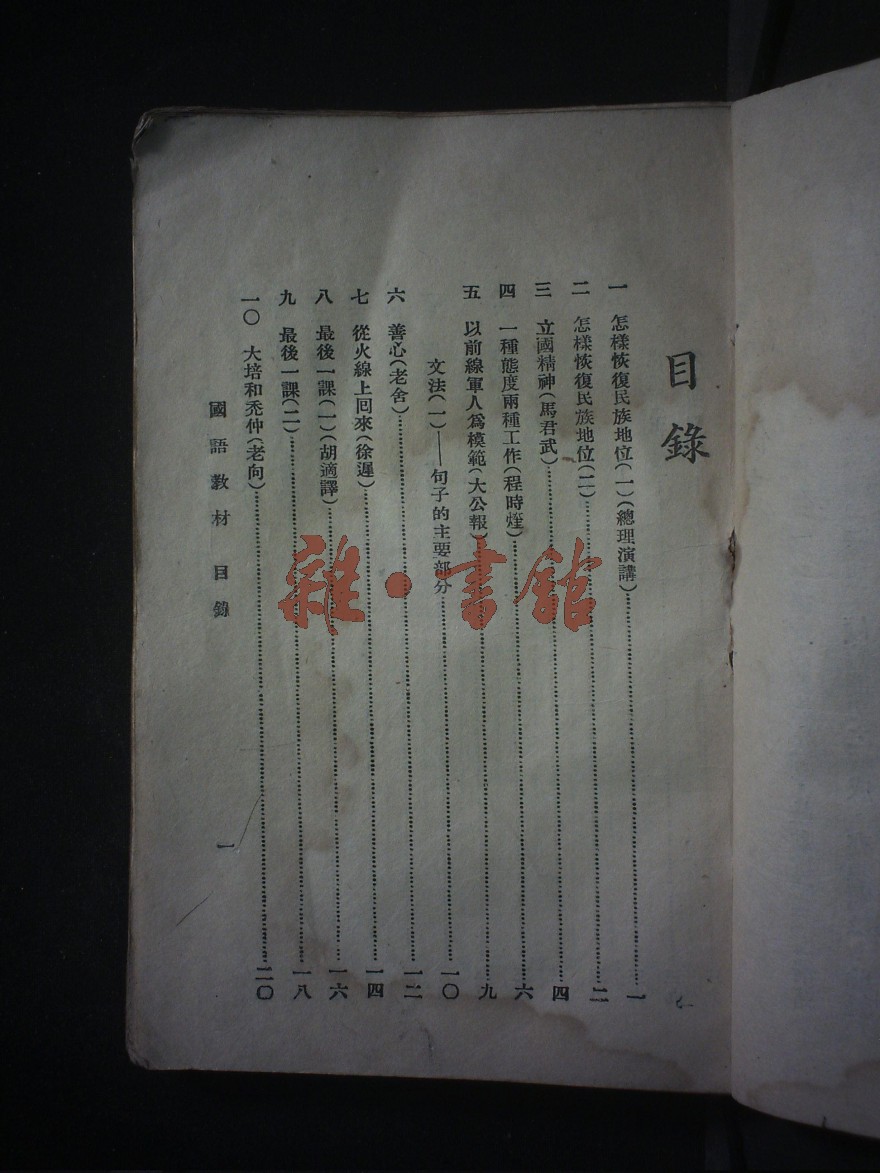 目錄
一 怎樣恢復民族地位(一)(總理演講)……一
二 怎樣恢復民族地位(二)……二
三 立國精神(馬君武)……四
四 一種態度兩種工作(程時煃)……六
五 以前線軍人爲模範(大公報)……九
文法(一)——句子的主要部分……一〇
六 善心(老舍)……一二
七 從火線上回來(徐遲)……一四
八 最後一課(一)(胡適譯)……一六
九 最後一課(二)……一八
一〇 大培和禿仲(老向)……二〇
國語教材 目錄 一
雜·書館